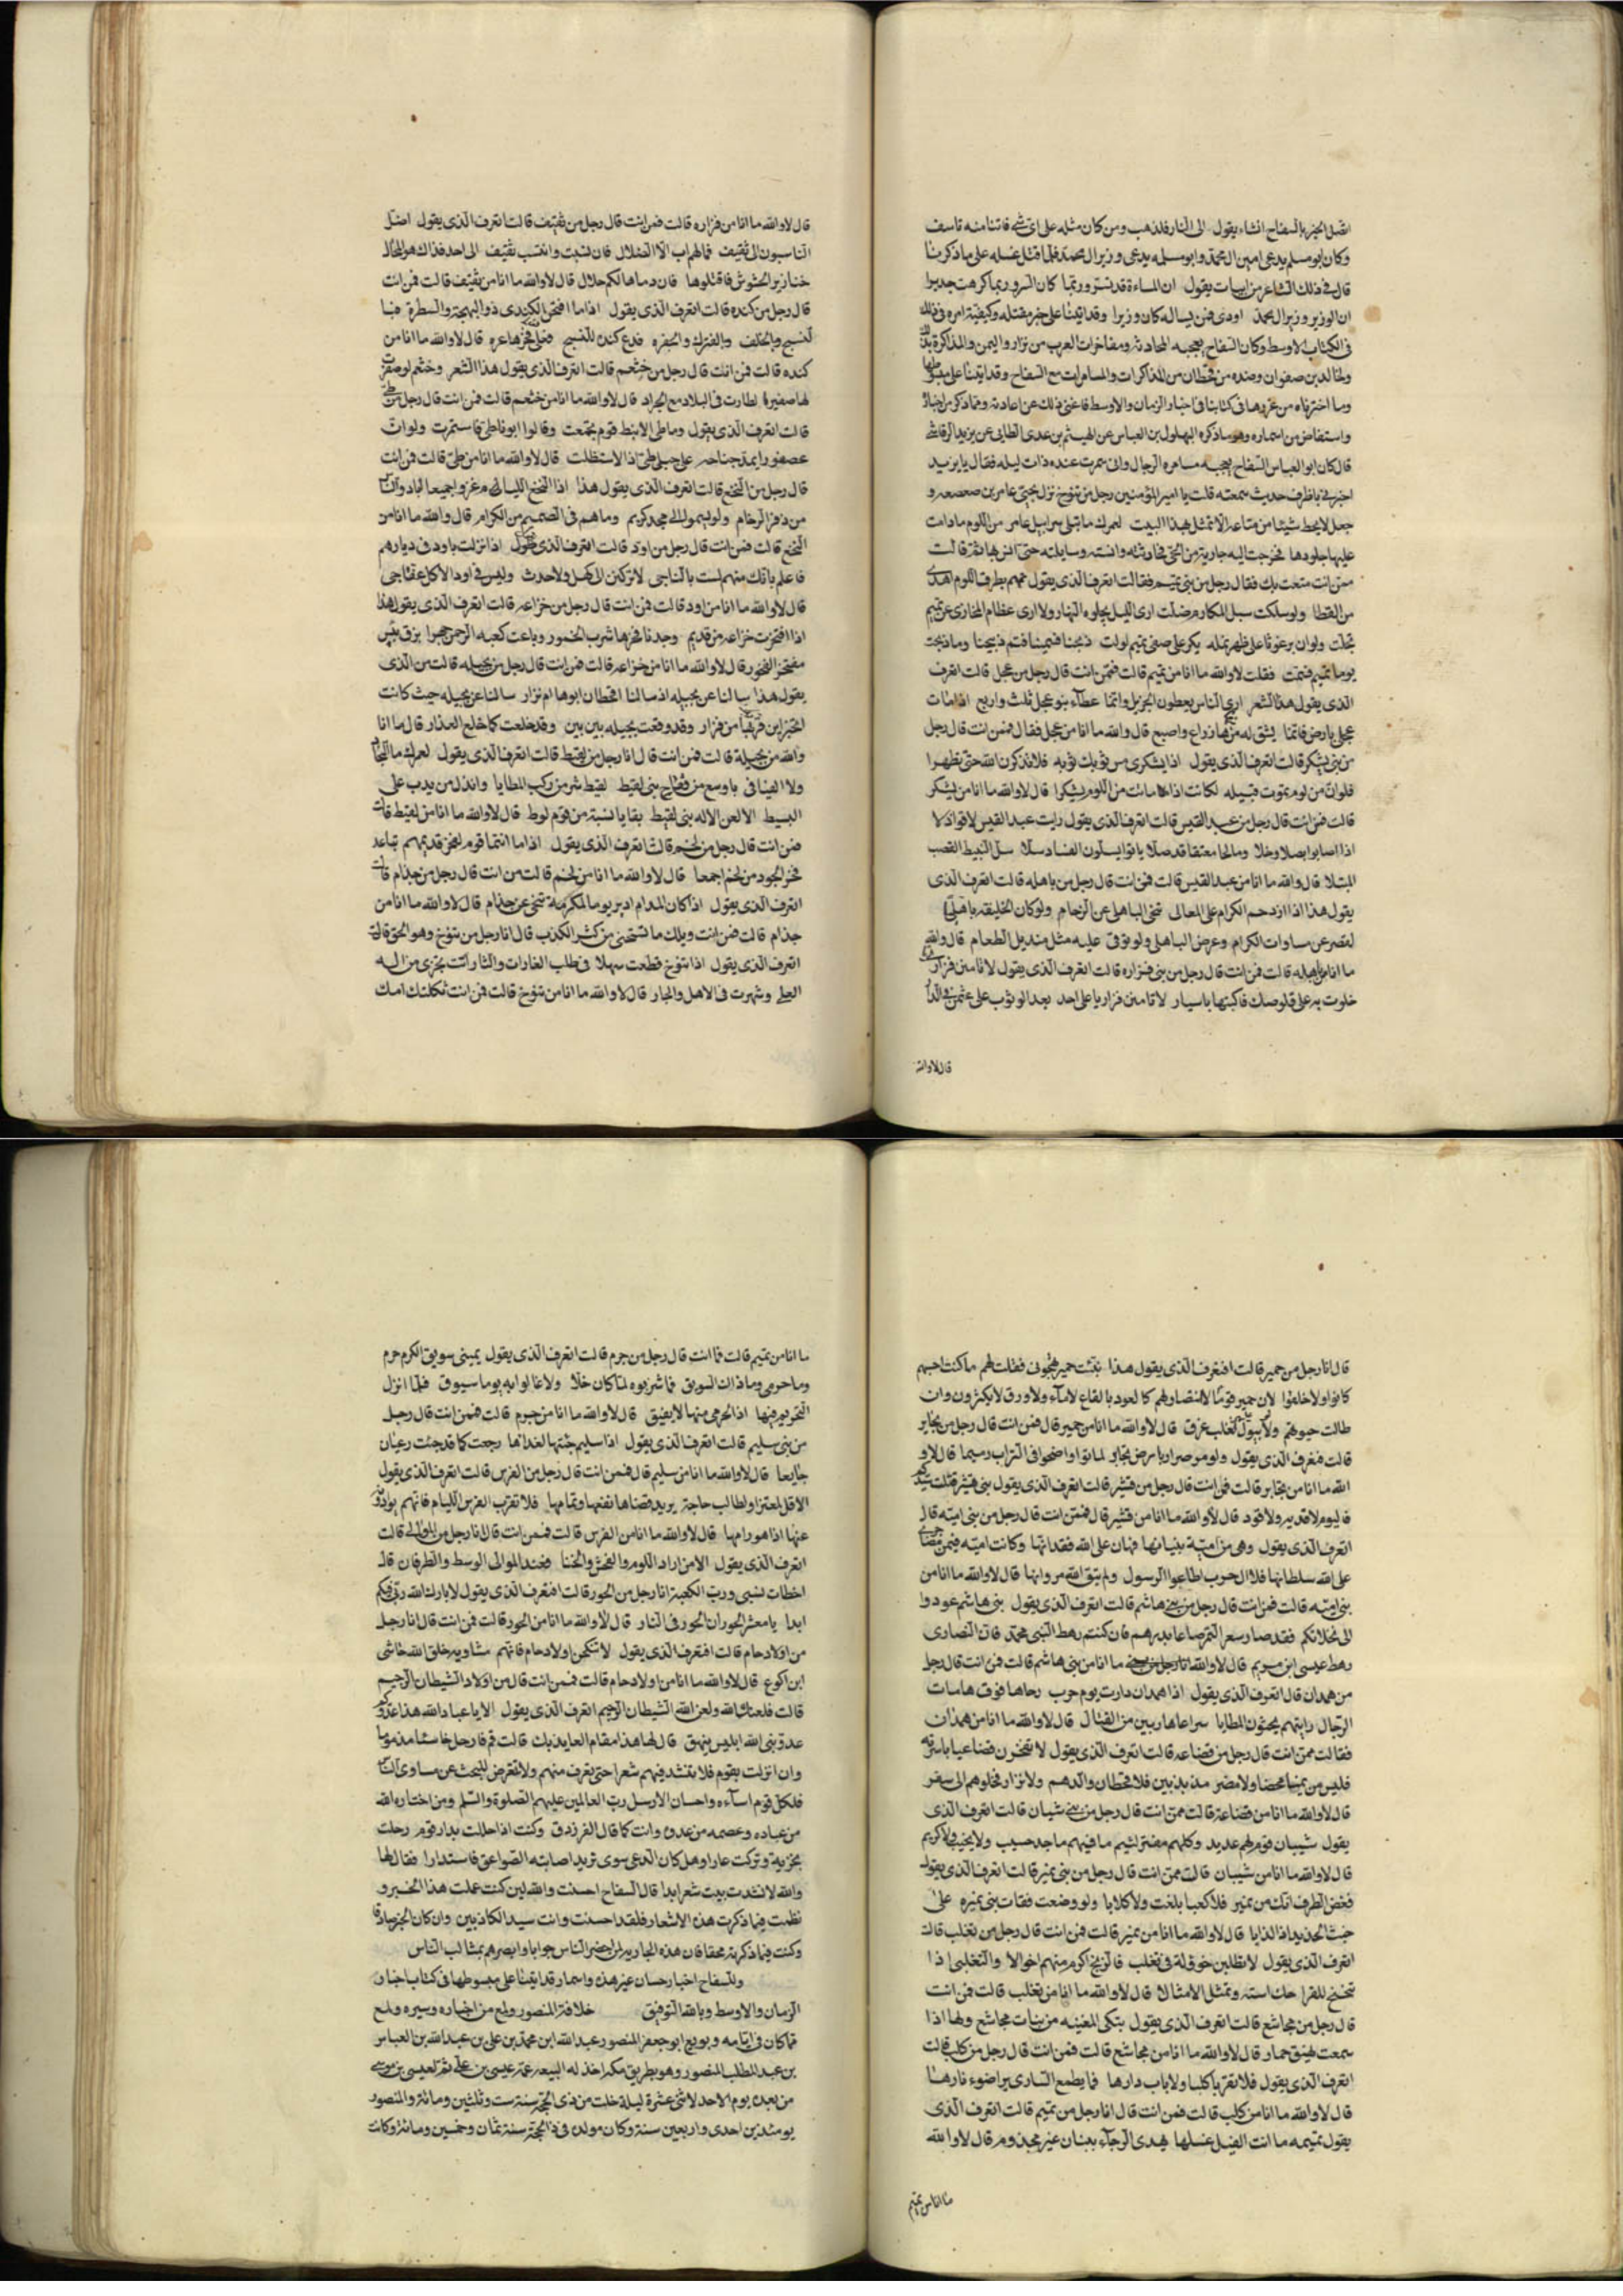 اتصل الخبر بالسفاح انشاء يقول الى النار فليذهب ومن كان مثله على اى شى فاتنا منه تاسف
وكان ابو مسلم يدعى امين ال محمد وابو سلمه يدعى وزير ال محمد فلما قتل غيله على ما ذكرنا
قال فى ذلك الشاعر من ابيات يقول ان المساءة قد تسر وربما كان السرور بما كرهت جديرا
ان الوزير وزير ال محمد اودى فمن يساله كان وزيرا وقد اتينا على خبر مقتله وكيفية امره فى ذلك
فى الكتاب الاوسط وكان السفاح يعجبه المحادثه ومفاخرات العرب من نزار واليمن والمذاكرة بذلك
ولخالد بن صفوان وغيره من قحطان من المذاكرات والمسامرات مع السفاح وقد اتينا على مبسوطها
وما اخترناه من غررها فى كتابنا فى اخبار الزمان والاوسط فاغنى ذلك عن اعادته ومما ذكر من اخباره
واستفاض من اسماره وهو ما ذكره البهلول بن العباس عن الهيثم بن عدى الطايى عن يزيد الرقاشى
قال كان ابو العباس السفاح يعجبه مسامره الرجال وانى سمرت عنده ذات ليله فقال يا يزيد
اخبرنى باظرف حديث سمعته قلت يا امير المؤمنين رجل من تنوخ نزل بحى عامر بن صعصعه و
جعل لا يحط شيئا من متاعه الا تمثل بهذا البيت لعمرك ما تبلى سرابيل عامر من اللوم ما دامت
عليها جلودها فخرجت اليه جارية من الحى فحادثته وانسته وسايلته حتى انس بها ثم قالت
ممن انت متعت بك فقال رجل من بنى تميم فقالت اتعرف الذى يقول تميم بطرق اللوم اهدى
من القطا ولو سلكت سبل المكارم ضلت ارى الليل يجلوه النهار ولا ارى عظام المخازى عن تميم
تجلت ولو ان برغوثا على ظهر نمله يكر على صفى تميم لولت ذبحنا فسمينا فتم ذبيحنا وما ذبحت
يوما تميم فسمت فقلت لا والله ما انا من تميم قالت فمن انت قال رجل من عجل قالت اتعرف
الذى يقول هذا الشعر ارى الناس يعطون الجزيل وانما عطاء بنو عجل ثلث واربع اذا مات
عجلى بارض فانما يشق له منها ذراع واصبع قال والله ما انا من عجل فقال فمن انت قال رجل
من بنى يشكر قالت اتعرف الذى يقول اذا يشكرى مس ثوبك ثوبه فلا تذكرن الله حتى تطهرا
فلو ان من لوم يموت قبيله لكانت اذا ماتت من اللوم يشكرا قال لا والله ما انا من يشكر
قالت فمن انت قال رجل من عبد القيس قالت اتعرف الذى يقول رايت عبد القيس لاقوا ذلا
اذا اصابوا بصلا وخلا ومالحا معتقا قد صلا باتوا يسلون الفساد سلا سل النبيط القصب
المبتلا قال والله ما انا من عبد القيس قالت فمن انت قال رجل من باهله قالت اتعرف الذى
يقول هذا اذا ازدحم الكرام على المعالى تنحى الباهلى عن الزحام ولو كان الخليفه باهليا
لقصر عن مساوات الكرام وعرض الباهلى ولو توقى عليه مثل منديل الطعام قال والله
ما انا من باهله قالت فمن انت قال رجل من بنى فزاره قالت اتعرف الذى يقول لا تامنن فزاريا
خلوت به على قلوصك فاكتبها باسيار لا تامنن فزاريا على احد بعد الوثوب على
قال لا والله
قال لا والله ما انا من فزاره قالت فمن انت قال رجل من ثقيف قالت اتعرف الذى يقول اضل
الناسبون الى ثقيف فما لهم اب الا الضلال فان نسبت وانتسب ثقيف الى احد فذاك هو المحال
خنازير الحشوش فاقتلوها فان دماها لكم حلال قال لا والله ما انا من ثقيف قالت فمن انت
قال رجل من كنده قالت اتعرف الذى يقول اذا ما افتخر الكندى ذو البهجة والسطرة فبا
لنسج وبالخلف وبالفرك والحفره فدع كنده للنسج فعلى فخرها عره قال لا والله ما انا من
كنده قالت فمن انت قال رجل من خثعم قالت اتعرف الذى يقول هذا الشعر وخثعم لو صفرت
لها صفيرا لطارت فى البلاد مع الجراد قال لا والله ما انا من خثعم قالت فمن انت قال رجل من طى
قالت اتعرف الذى يقول وما طى الا نبط قوم تجمعت وقالوا ابو فاطى فاستمرت ولو ان
عصفورا يمد جناحه على جبلى طى اذا لاستظلت قال لا والله ما انا من طى قالت فمن انت
قال رجل من النخع قالت اتعرف الذى يقول هذا اذا النخع الليام غزوا جميعا
من دفر الزحام ولو يسموا الى مجد كريم وما هم فى الصميم من الكرام قال والله ما انا من
النخع قالت فمن انت قال رجل من اود قالت اتعرف الذى يقول اذا نزلت باود فى ديارهم
فاعلم بانك منهم لست بالناجى لا تركنن الى كهل ولا حدث وليس فى اود الا كل عفاجى
قال لا والله ما انا من اود قالت فمن انت قال رجل من خزاعه قالت اتعرف الذى يقول هذا
اذا افتخرت خزاعه من قديم وجدنا فخرها شرب الخمور وباعت كعبه الرحمن جهرا بزق بئس
مفتخر الفخور قال لا والله ما انا من خزاعه قالت فمن انت قال رجل من بجيله قالت من الذى
يقول هذا سالنا عن بجيله اذ سالنا اقحطان ابوها ام نزار سالنا عن بجيله حيث كانت
لتخبر اين قر بها من قرار وقد وقعت بجيله بين بين وقد خلعت كما خلع العذار قال ما انا
والله من بجيلة قالت فمن انت قال انا رجل من لقيط قالت اتعرف الذى يقول لعمرك ما البحار
ولا الفيافى باوسع من فقاح بنى لقيط لقيط شر من ركب المطايا وانذل من يدب على
البسيط الا لعن الاله بنى لقيط بقايا نسبته من قوم لوط قال لا والله ما انا من لقيط قالت
فمن انت قال رجل من لخم قالت اتعرف الذى يقول اذا ما انتما قوم لفخر قديمهم تباعد
فخر الجود من لخم اجمعا قال لا والله ما انا من لخم قالت من انت قال رجل من جذام قالت
اتعرف الذى يقول اذا كان المدام ادير يوما لمكرمة تنحى عن جذام قال لا والله ما انا من
جذام قالت فمن انت ويلك ما تستحيى من كثر الكذب قال انا رجل من تنوخ وهو الحق قالت
اتعرف الذى يقول اذا تنوخ قطعت سهلا فى طلب الغارات والثار اتت بخزى من اله
العلى وشهرت فى الاهل والجار قال لا والله ما انا من تنوخ قالت فمن انت ثكلتك امك
قال انا رجل من حمير قالت افتعرف الذى يقول هذا نبئت حمير تهجونى فقلت لهم ما كنت احبهم
كانوا ولا خلقوا لان حمير قوما لا نصاب لهم كالعود بالقاع لا ماء ولا ورق لا يكثرون وان
طالت حيوتهم ولو يبول ثعلب غرق قال لا والله ما انا من حمير قال فمن انت قال رجل من يحابر
قالت فتعرف الذى يقول ولو صر صرار بارض يحابر لماتوا واضحوا فى التراب رميما قال لا و
الله ما انا من يحابر قالت فمن انت قال رجل من قشير قالت اتعرف الذى يقول بنى قشير قتلت سيدكم
فاليوم لا فديه ولا قود قال لا والله ما انا من قشير قال فممن انت قال رجل من بنى اميه قال
اتعرف الذى يقول وهى من امية بنيانها فهان على الله فقدانها وكانت اميه فيمن مضى
على الله سلطانها فلا ال حرب اطاعوا الرسول ولم يتق الله مروانها قال لا والله ما انا من
بنى اميه قالت فمن انت قال رجل من بنى هاشم قالت اتعرف الذى يقول بنى هاشم عودوا
الى نخلاتكم فقد صار سعر التمر صاعا بدرهم فان كنتم رهط النبى محمد فان النصارى
رهط عيسى ابن مريم قال لا والله ما انا من بنى هاشم قالت فمن انت قال رجل
من همدان قال اتعرف الذى يقول اذا همدان دارت يوم حرب رحاها فوق هامات
الرجال رايتهم يحثون المطايا سراعا هاربين من القتال قال لا والله ما انا من همدان
فقالت ممن انت قال رجل من قضاعه قالت اتعرف الذى يقول لا تفخرن قضاعيا باسرته
فليس من يمنيا محضا ولا مضر مذبذبين فلا قحطان والدهم ولا نزار فخلوهم الى سقر
قال لا والله ما انا من قضاعة قالت ممن انت قال رجل من بنى شيبان قالت اتعرف الذى
يقول شيبان قوم لهم عديد وكلهم مقترف لئيم ما فيهم ماجد حسيب ولا نجيب ولا كريم
قال لا والله ما انا من شيبان قالت ممن انت قال رجل من بنى نمير قالت اتعرف الذى يقول
فغض الطرف انك من نمير فلا كعبا بلغت ولا كلابا ولو وضعت فقاح بنى نميره على
خبث الحديد اذا لذابا قال لا والله ما انا من نمير قالت فمن انت قال رجل من تغلب قالت
اتعرف الذى يقول لا تطلبن خوولة فى تغلب فالزنج اكرم منهم اخوالا والتغلبى اذا
تنحنح للقرا حك استه وتمثل الامثالا قال لا والله ما انا من تغلب قالت فمن انت
قال رجل من مجاشع قالت اتعرف الذى يقول بتكى المغيبه من بنات مجاشع ولها اذا
سمعت نهيق حمار قال لا والله ما انا من مجاشع قالت فمن انت قال رجل من كلب قالت
اتعرف الذى يقول فلا تقربا كلبا ولا باب دارها فما يطمع السارى يرا ضوء نارها
قال لا والله ما انا من كلب قالت فمن انت قال انا رجل من تميم قالت اتعرف الذى
يقول تميمه ما انت الفيل غسلها يهدى الرجاء ببنان غير مجذوم قال لا والله
ما انا من تميم
ما انا من تميم قالت فما انت قال رجل من جرم قالت اتعرف الذى يقول يمينى سويق الكرم جرم
وما جرمى وما ذاك السويق فما شربوه لما كان حلا ولا غالوا به يوما سيوق فلما انزل
التحريم فيها اذا الجرمى منها لا يفيق قال لا والله ما انا من جرم قالت فممن انت قال رجل
من بنى سليم قالت اتعرف الذى يقول اذا سليم جئتها لغدائها رجعت كما قد جئت رعيان
جايعا قال لا والله ما انا من سليم قال فممن انت قال رجل من الفرس قالت اتعرف الذى يقول
الا قل لمعتز ولطالب حاجة يريد قضاها نفعها وتمامها فلا تقرب الفرس الليام فانهم
عنها اذا هو رامها قال لا والله ما انا من الفرس قالت فممن انت قال انا رجل من الموالى قالت
اتعرف الذى يقول الا من اراد اللوم والفحش والخنا فعند الموالى الوسط والطرفان قال
اخطات نسبى ورب الكعبة انا رجل من الخوز قالت افتعرف الذى يقول لا بارك الله ربى فيكم
ابدا يا معشر الخوز ان الخوز فى النار قال لا والله ما انا من الخوز قالت فمن انت قال انا رجل
من اولاد حام قالت افتعرف الذى يقول لا تنكحن اولاد حام فانهم مشاويه خلق الله حاشى
ابن اكوع قال لا والله ما انا من اولاد حام قالت فممن انت قال من اولاد الشيطان الرجيم
قالت فلعنك الله ولعن الله الشيطان الرجيم اتعرف الذى يقول الا يا عباد الله هذا عدوكم
عدو نبى الله ابليس ينهق قال لها هذا مقام العايذ بك قالت قم فارحل خاسئا مذموما
وان انزلت بقوم فلا تنشد فيهم شعرا حتى تعرف منهم ولا تتعرض للبحث عن مساوى الناس
فلكل قوم اساءه واحسان الا رسل رب العالمين عليهم الصلوة والسلم ومن اختاره الله
من عباده وعصمه من عدوه وانت كما قال الفرزدق وكنت اذا حللت بدار قوم رحلت
بخزية وتركت عارا وهل كان سوى اصابته الصواعق فاستدارا فقال لها
والله لا نشدت بيت شعر ابدا قال السفاح احسنت والله لين كنت عملت هذا الخبر و
نظمت فيما ذكرت هذه الاشعار فلقد احسنت وانت سيد الكاذبين وان كان الخبر صادقا
وكنت فيما ذكرته محقا فان هذه الجاريه لمن احضر الناس جوابا وابصرهم بمثالب الناس
وللسفاح اخبار حسان غير هذه واسمار قد اتينا على مبسوطها فى كتاب اخبار
الزمان والاوسط وبالله التوفيق خلافة المنصور ولمع من اخباره وسيره ولمع
مما كان فى ايامه وبويع ابو جعفر المنصور عبد الله ابن محمد بن على بن عبد الله بن العباس
بن عبد المطلب المنصور وهو بطريق مكه اخذ له البيعه عمه عيسى بن على ثم لعيسى بن موسى
من بعده يوم الاحد لاثنى عشرة ليلة خلت من ذى الحجة سنه ست وثلثين ومائة والمنصور
يومئذ بن احدى واربعين سنة وكان مولده فى ذى الحجة سنة ثمان وخمسين ومائة وكانت